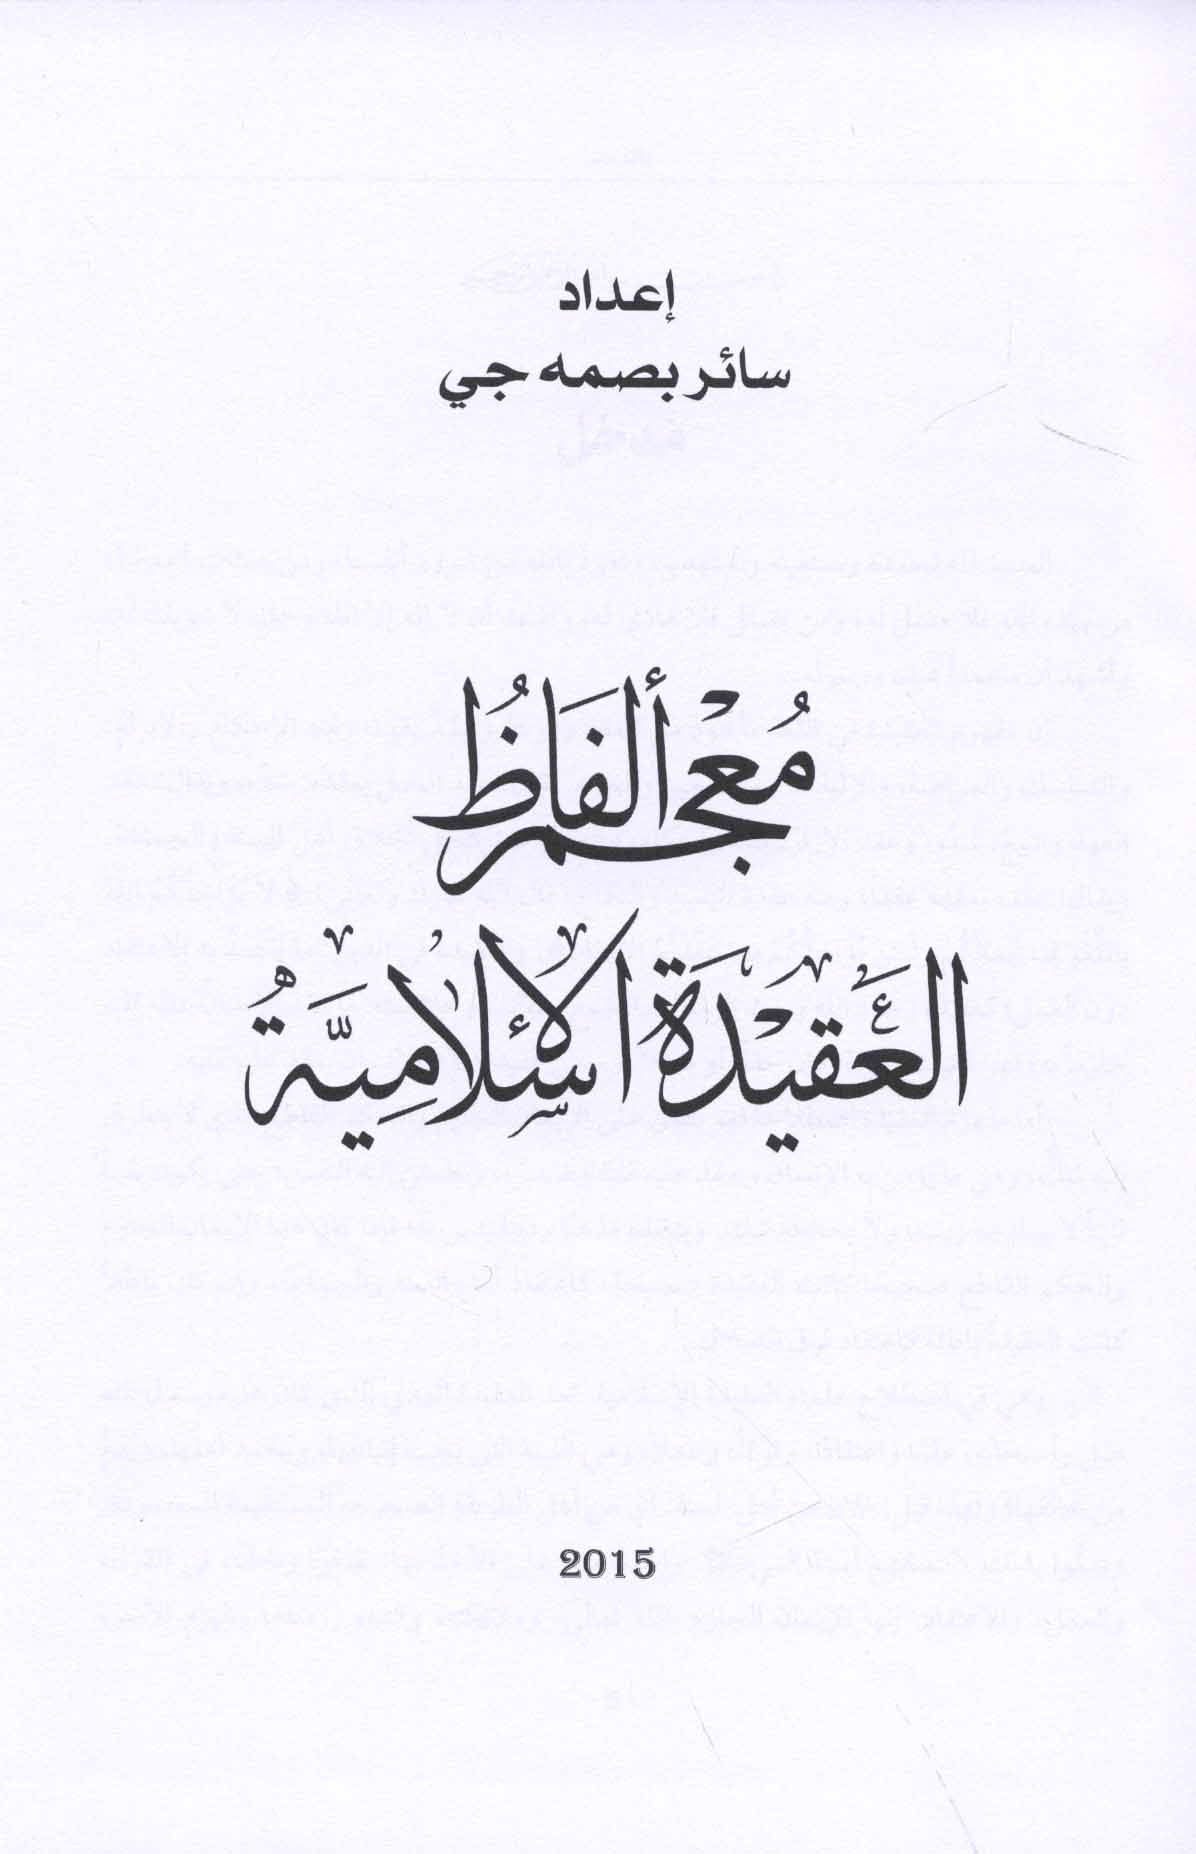 إعداد
سائر بصمه جي
معجم ألفاظ
العقيدة الإسلامية
2015